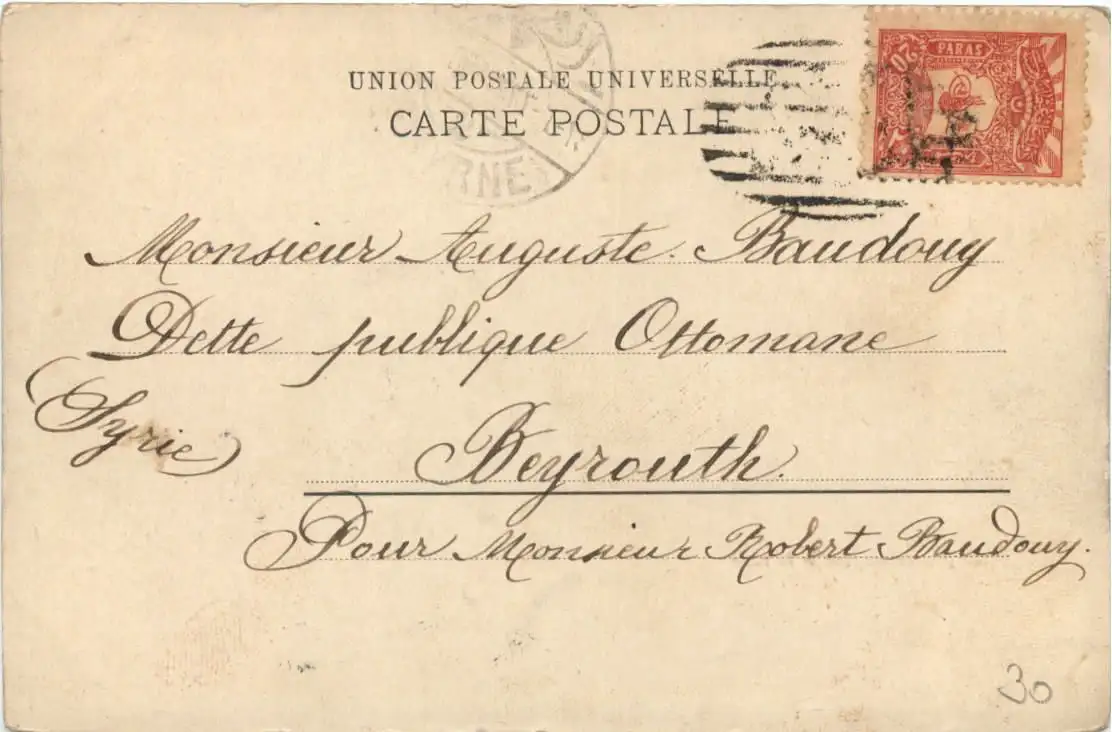 UNION POSTALE UNIVERSELLE
CARTE POSTALE
20 PARAS
Monsieur Auguste Baudouy
Dette publique Ottomane
(Syrie)
Beyrouth.
Pour Monsieur Robert Baudouy.
30